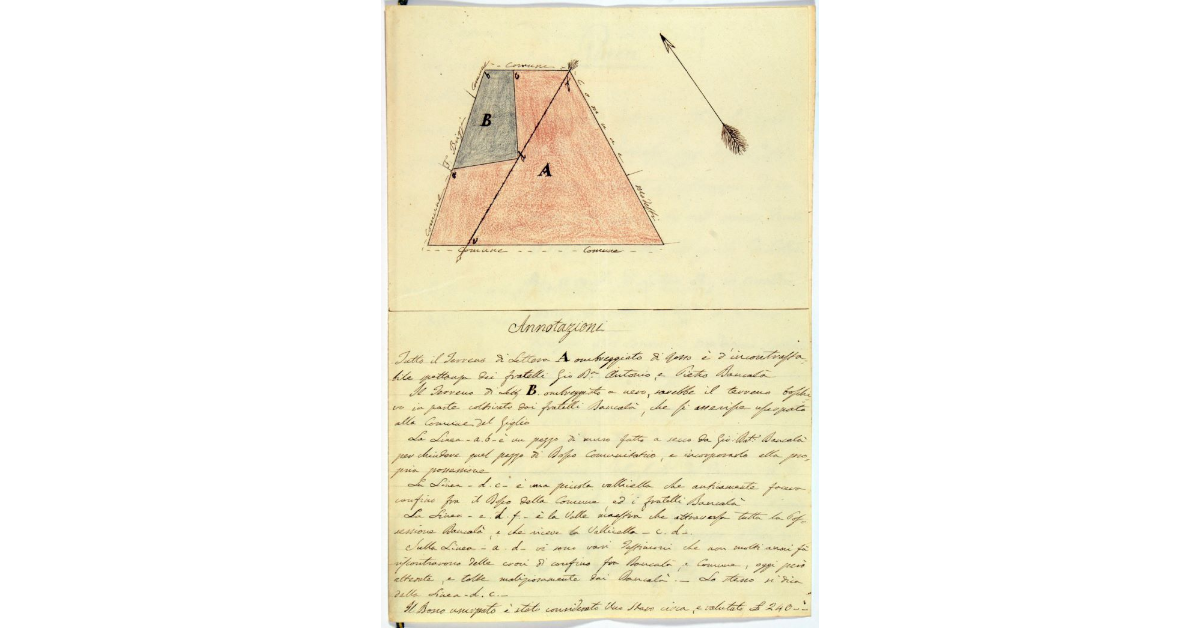 Comune
b
b
B
A
d
e
Comune
Comune
Comune
Annotazioni
Tutto il Terreno di Lettera A ombreggiato di Rosso è d'incontrastabile
dei fratelli Gio Bta Antonio, e Pietro Bancalà
Il Terreno di Letta B. ombreggiato a nero, sarebbe il terreno boschi-
vo in parte coltivato dai fratelli Bancalà, che si asserisce usurpato
alla Comune del Giglio
La Linea - a.b - è un pezzo di muro fatto a secco da Gio: Bta Bancalà
per chiudere quel pezzo di Bosco Comunitario, e incorporarlo alla pro-
pria possessione
La Linea - d.c - è una piccola vallicella che anticamente faceva
confine fra il Bosco della Comune ed i fratelli Bancalà
La Linea - e.d.f. - è la Valle maestra che attraversa tutta la Pos-
sessione Bancalà, e che riceve la Vallicella - c.d -
Sulla Linea - a.d - vi sono vari che non molti anni fà
riscontravono delle croci di confine fra Bancalà, e Comune, oggi però
e tolte maliziosamente dai Bancalà. - Lo stesso si dica
della Linea - d.c. -
Il Bosco usurpato è stato considerato Uno Staro circa, e valutato £ 240 -